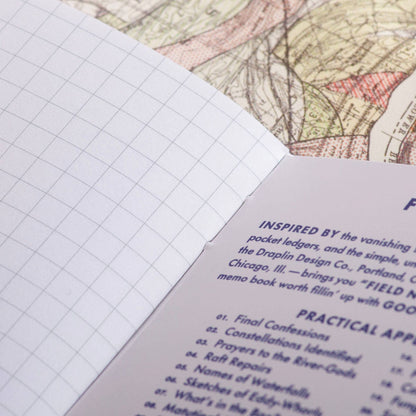 F
INSPIRED BY the vanishing
pocket ledgers, and the simple, un
the Draplin Design Co., Portland, O
Chicago, Ill. — brings you "FIELD
memo book worth fillin' up with GOO
PRACTICAL APP
01. Final Confessions
02. Constellations Identified
03. Prayers to the River-Gods
04. Raft Repairs
05. Names of Waterfalls
06. Sketches of Eddy-Whor
07. What's in the